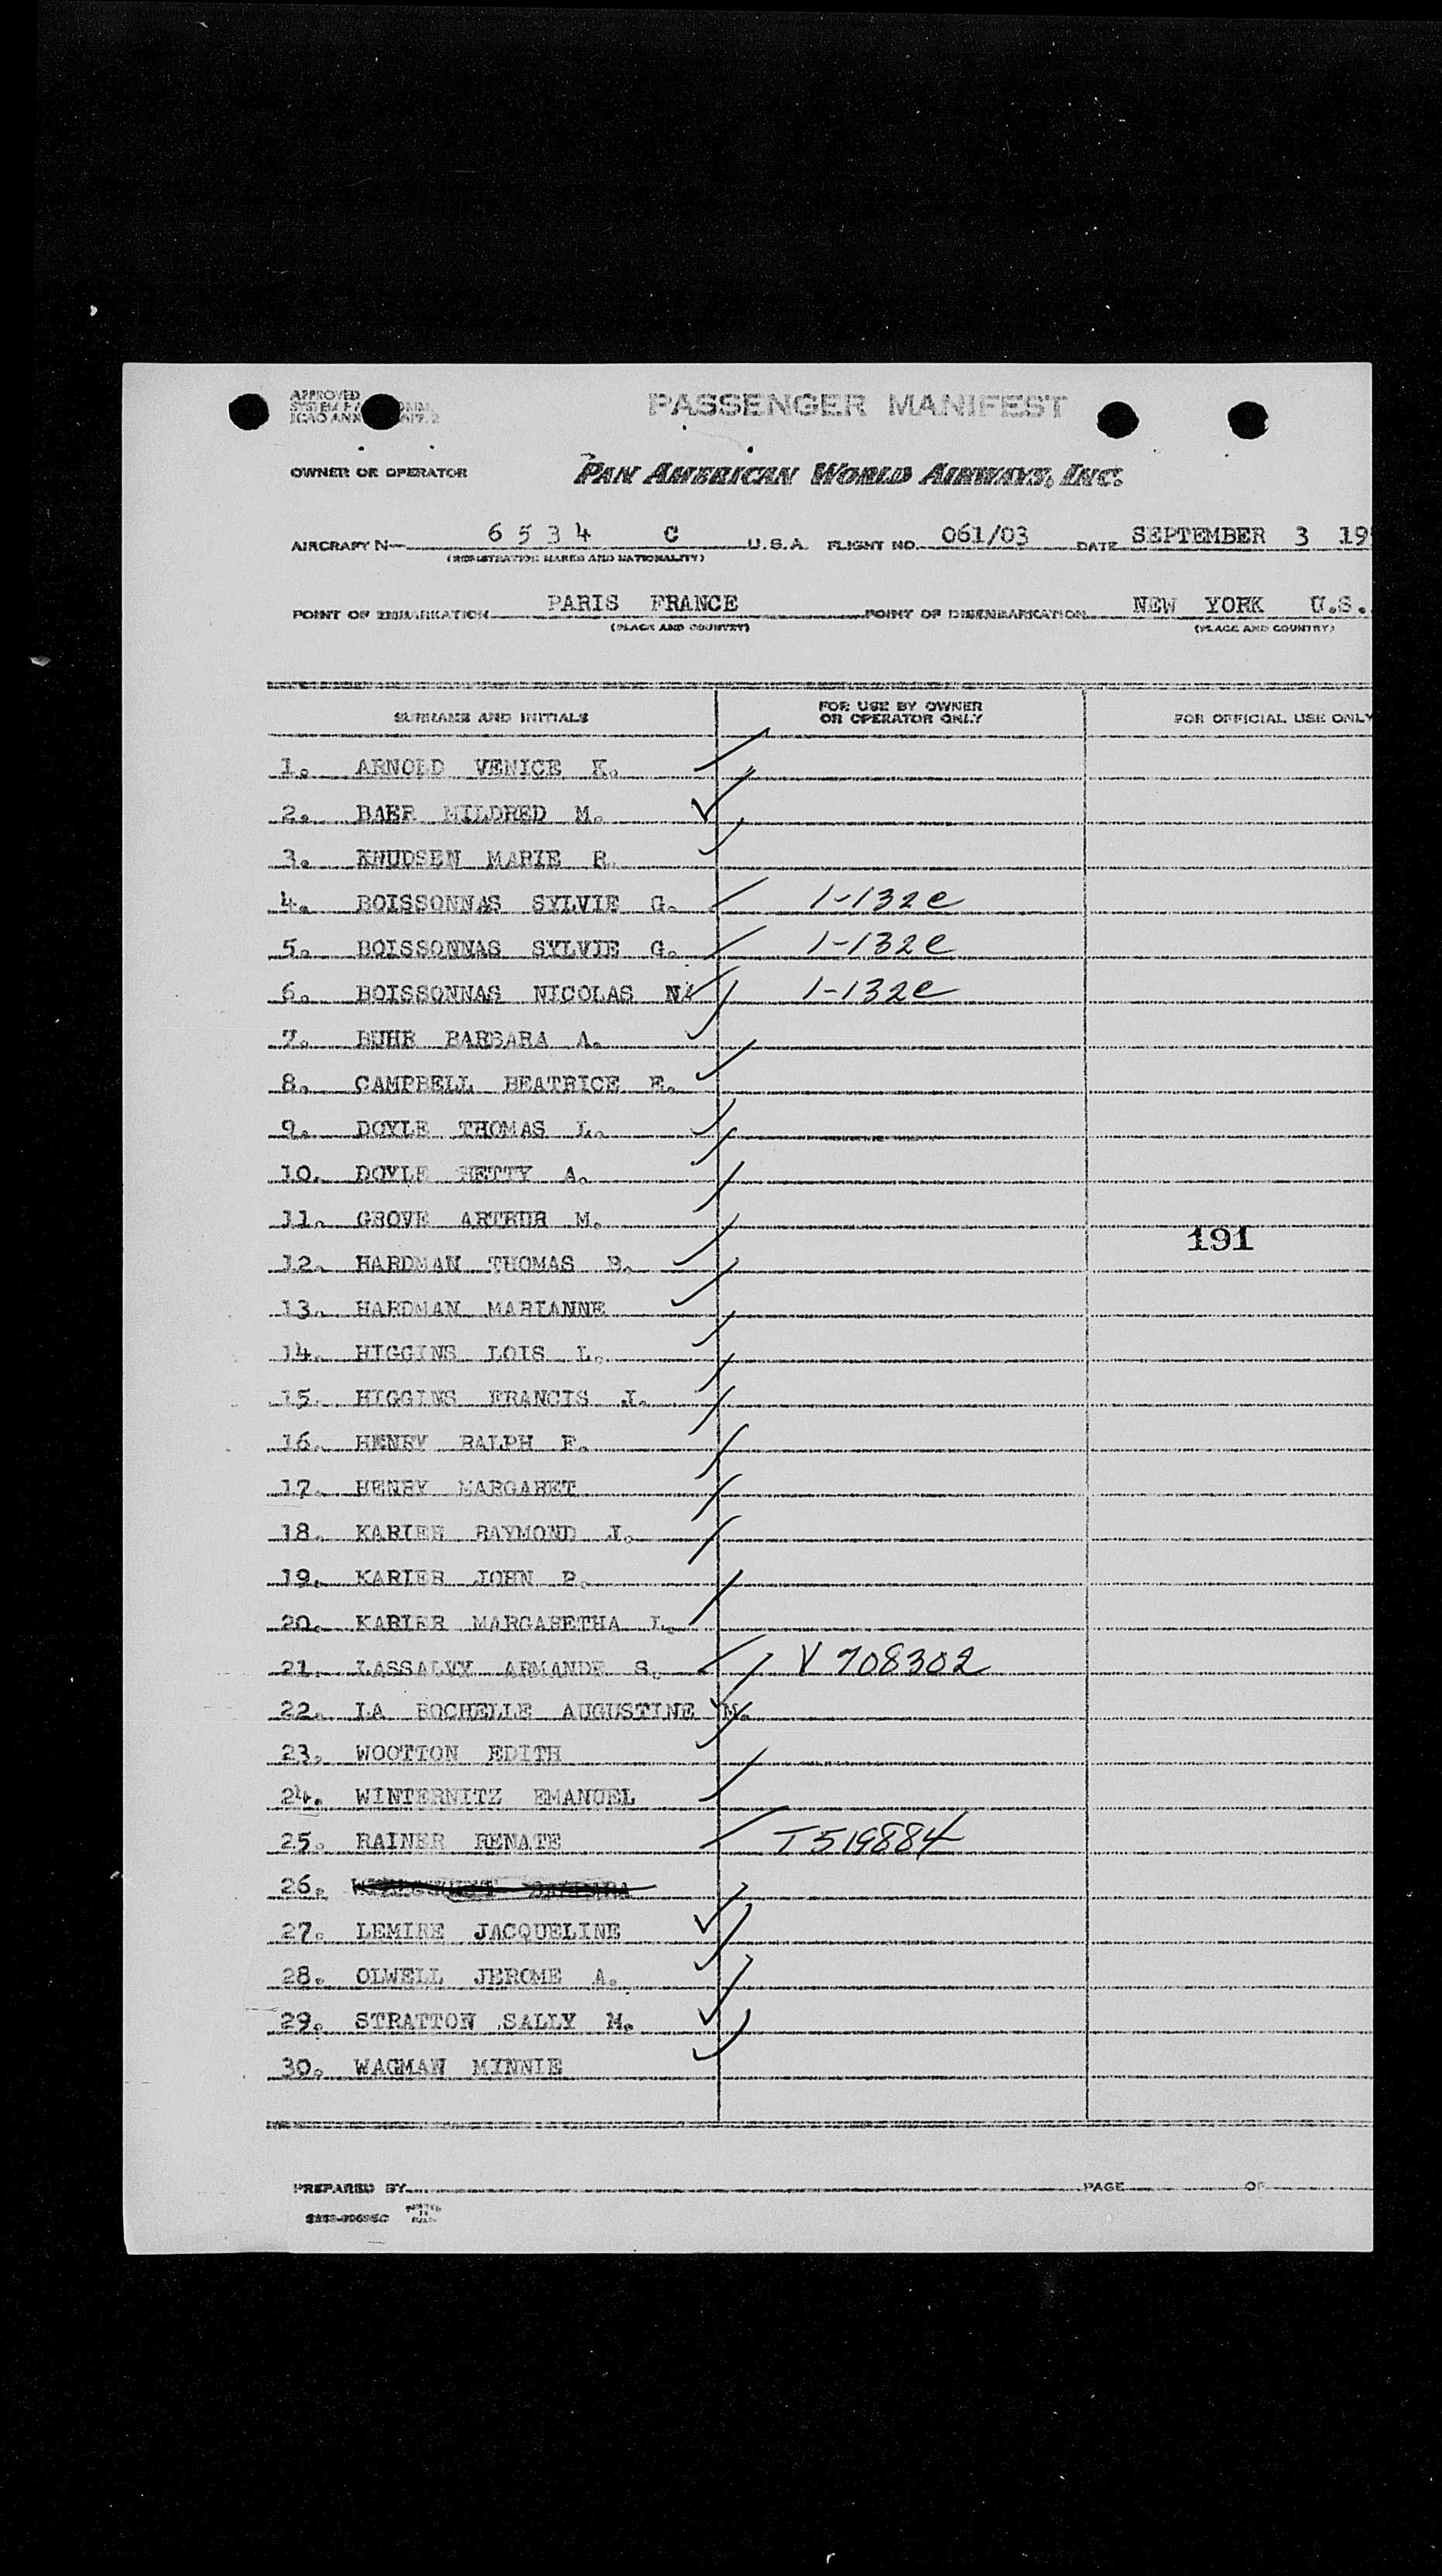 APPROVED
PASSENGER MANIFEST
OWNER OR OPERATOR PAN AMERICAN WORLD AIRWAYS, INC.
AIRCRAFT N- 6 5 3 4 C U.S.A. FLIGHT NO. 061/03 DATE SEPTEMBER 3 19
(REGISTRATION MARKS AND NATIONALITY)
POINT OF EMBARKATION PARIS FRANCE POINT OF DISEMBARKATION NEW YORK U.S.
(PLACE AND COUNTRY) (PLACE AND COUNTRY)
SURNAME AND INITIALS FOR USE BY OWNER OR OPERATOR ONLY FOR OFFICIAL USE ONLY
1. ARNOLD VENICE K.
2. BAER MILDRED M.
3. KNUDSEN MARIE R.
4. BOISSONNAS SYLVIE G. 1-132e
5. BOISSONNAS SYLVIE G. 1-132e
6. BOISSONNAS NICOLAS N. 1-132e
7. BUHR BARBARA A.
8. CAMPBELL BEATRICE E.
9. DOYLE THOMAS L.
10. DOYLE HETTY A.
11. GROVE ARTHUR M.
191
12. HARDMAN THOMAS B.
13. HARDMAN MARIANNE
14. HIGGINS LOIS L.
15. HIGGINS FRANCIS J.
16. HENRY RALPH F.
17. HENRY MARGARET
18. KARIER RAYMOND J.
19. KARIER JOHN P.
20. KARIER MARGARETHA L.
21. LASSALVY ARMANDE S. V 708302
22. LA ROCHELLE AUGUSTINE M.
23. WOOTTON EDITH
24. WINTERNITZ EMANUEL
25. RAINER RENATE T 519884
26.
27. LEMIRE JACQUELINE
28. OLWELL JEROME A.
29. STRATTON SALLY M.
30. WAGMAN MINNIE
PREPARED BY PAGE OF